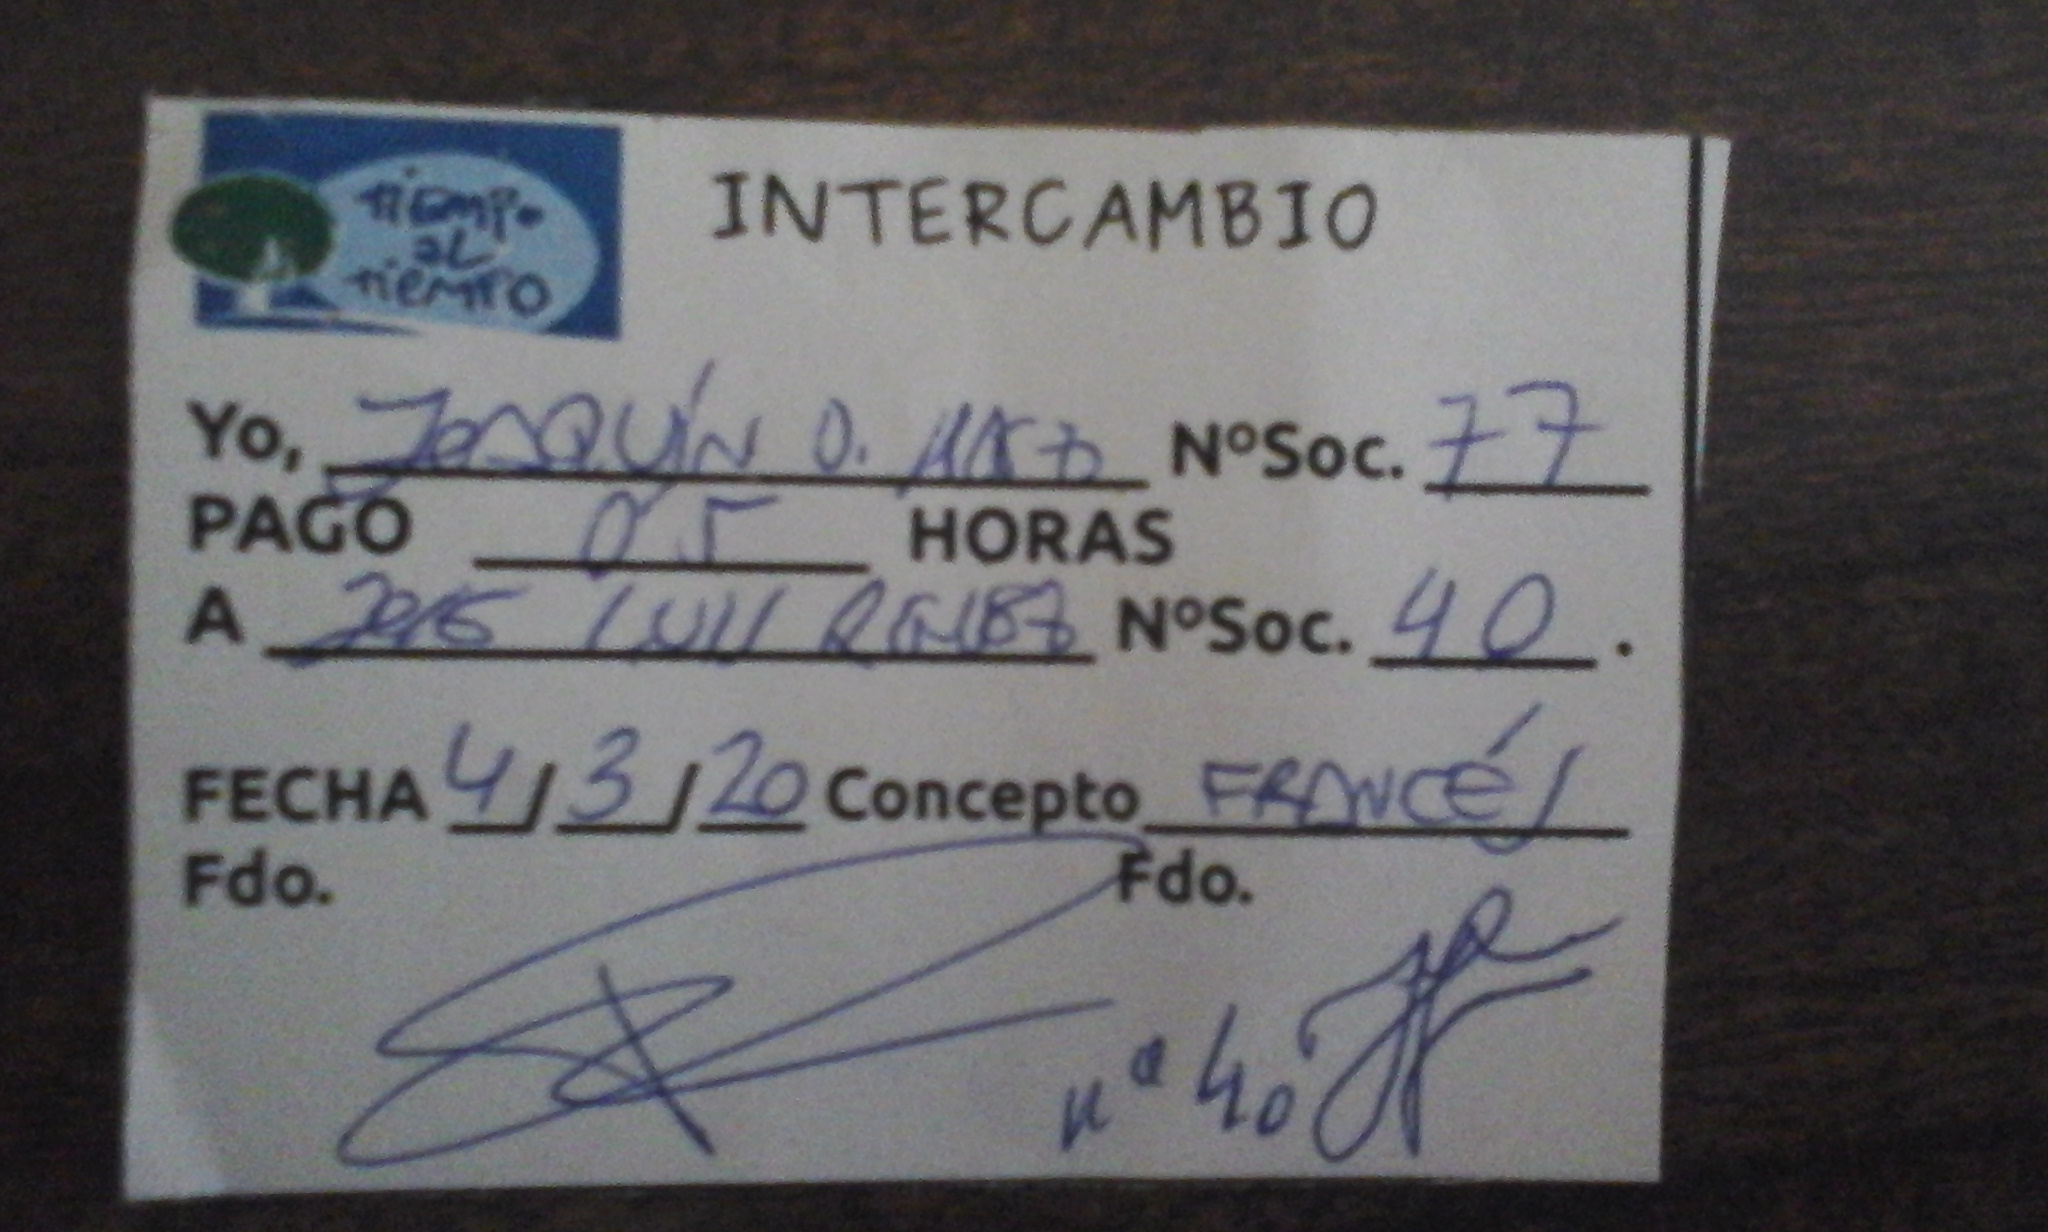 tiempo
al
tiempo
INTERCAMBIO
Yo, JOAQUÍN O. NºSoc. 77
PAGO 0'5 HORAS
A JOSE LUIS NºSoc. 40.
FECHA 4/3/20 Concepto FRANCÉS
Fdo. Fdo.
nº 40